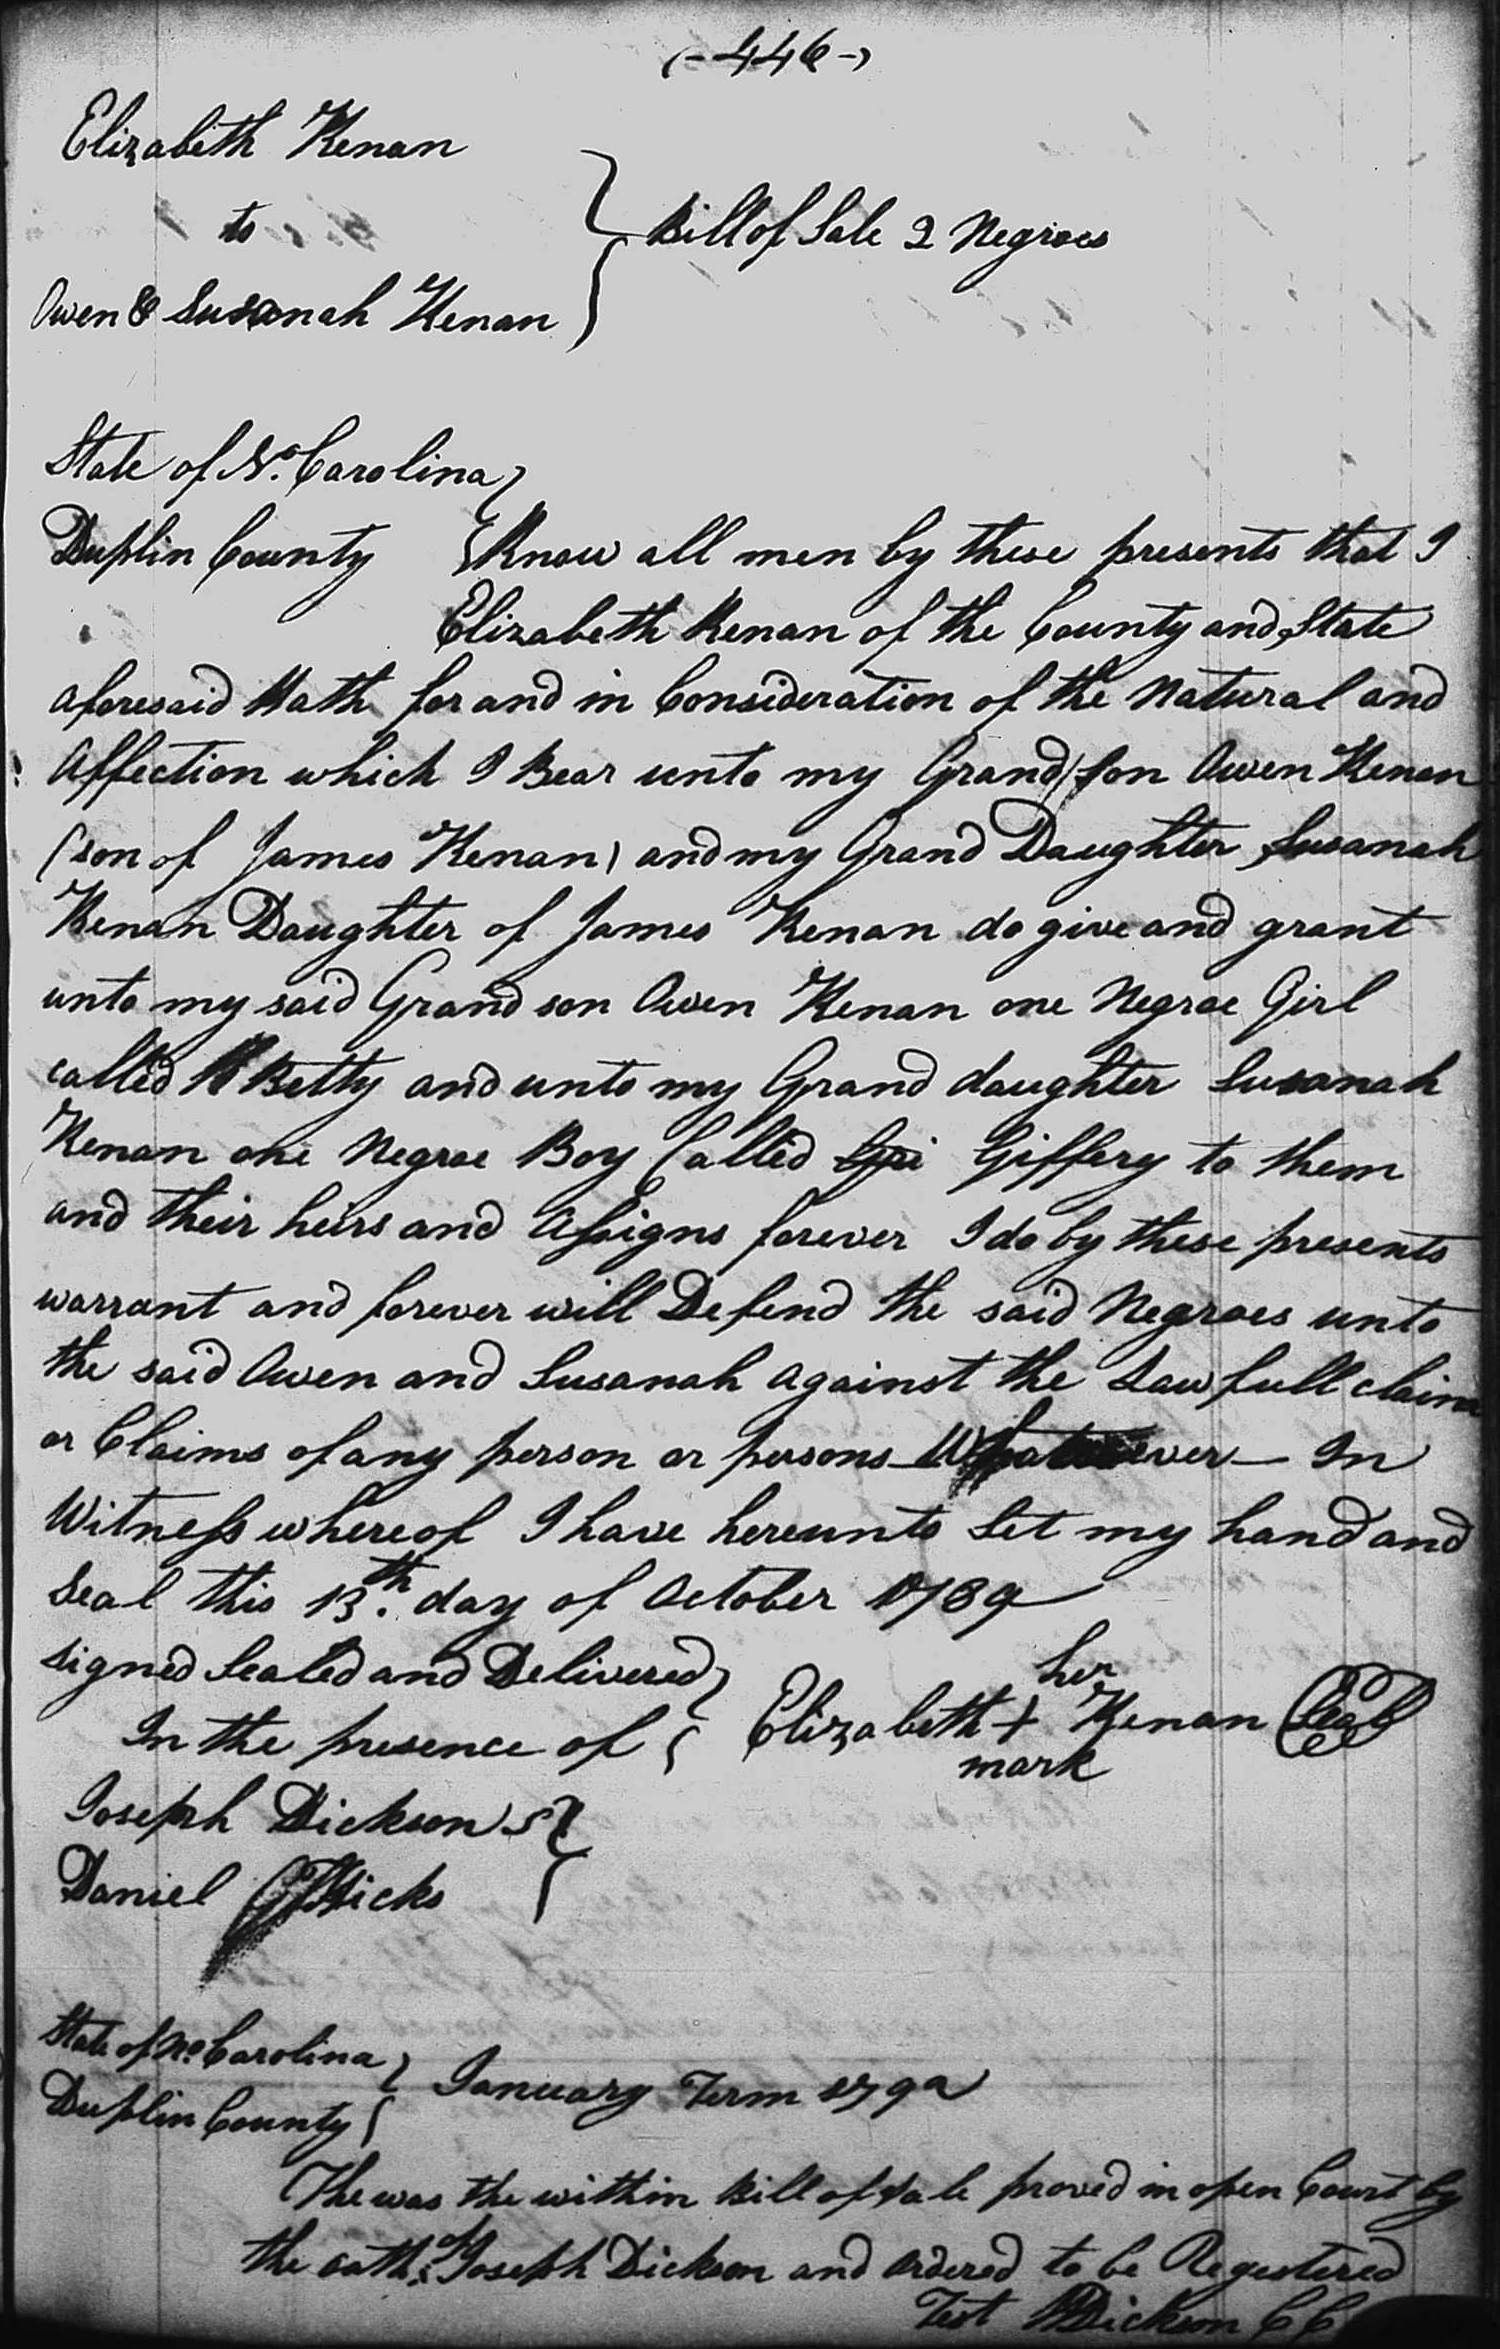 (-446-)
Elizabeth Kenan
to
Owen & Susanah Kenan
Bill of Sale 2 Negroes
State of No. Carolina
Duplin County Know all men by these presents that I
Elizabeth Kenan of the County and State
aforesaid Hath for and in Consideration of the Natural and
Affection which I Bear unto my Grand Son Owen Kenan
(son of James Kenan) and my Grand Daughter Susanah
Kenan Daughter of James Kenan do give and grant
unto my said Grand son Owen Kenan one Negroe Girl
called Betty and unto my Grand daughter Susanah
Kenan one Negroe Boy Called Giffery to them
and their heirs and Assigns forever I do by these presents
warrant and forever will Defend the said Negroes unto
the said Owen and Susanah against the Lawfull claim
or Claims of any person or persons Whatsoever — In
Witness whereof I have hereunto Set my hand and
Seal this 13th. day of October 1789
signed Sealed and Delivered
In the presence of
her
Elizabeth + Kenan Seal
mark
Joseph Dickson
Daniel Hicks
State of No. Carolina
Duplin County
January Term
The was the within Bill of Sale proved in open Court by
the oath of Joseph Dickson and ordered to be Registered
Test Dickson CC